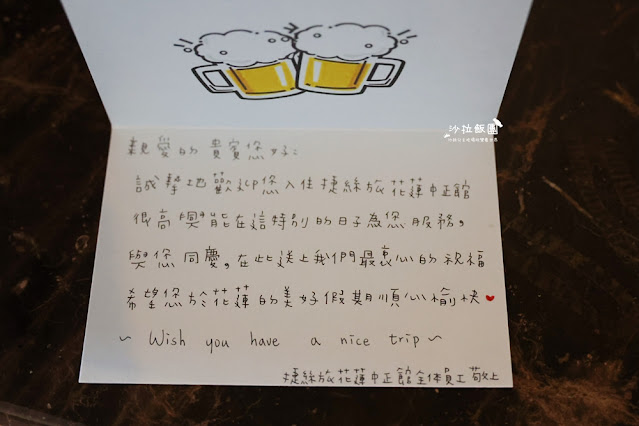 沙拉飯團
親愛的 貴賓您好：
誠摯地歡迎您入住捷絲旅花蓮中正館
很高興能在這特別的日子為您服務，
與您同慶。在此送上我們最衷心的祝福
希望您於花蓮的美好假期順心愉快❤
~ Wish you have a nice trip ~
捷絲旅花蓮中正館全体員工 敬上